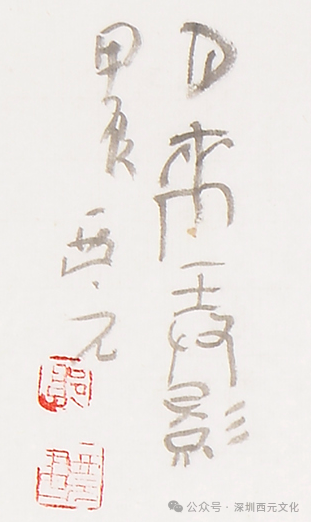 月来弄影
甲辰
西元
公众号 · 深圳西元文化